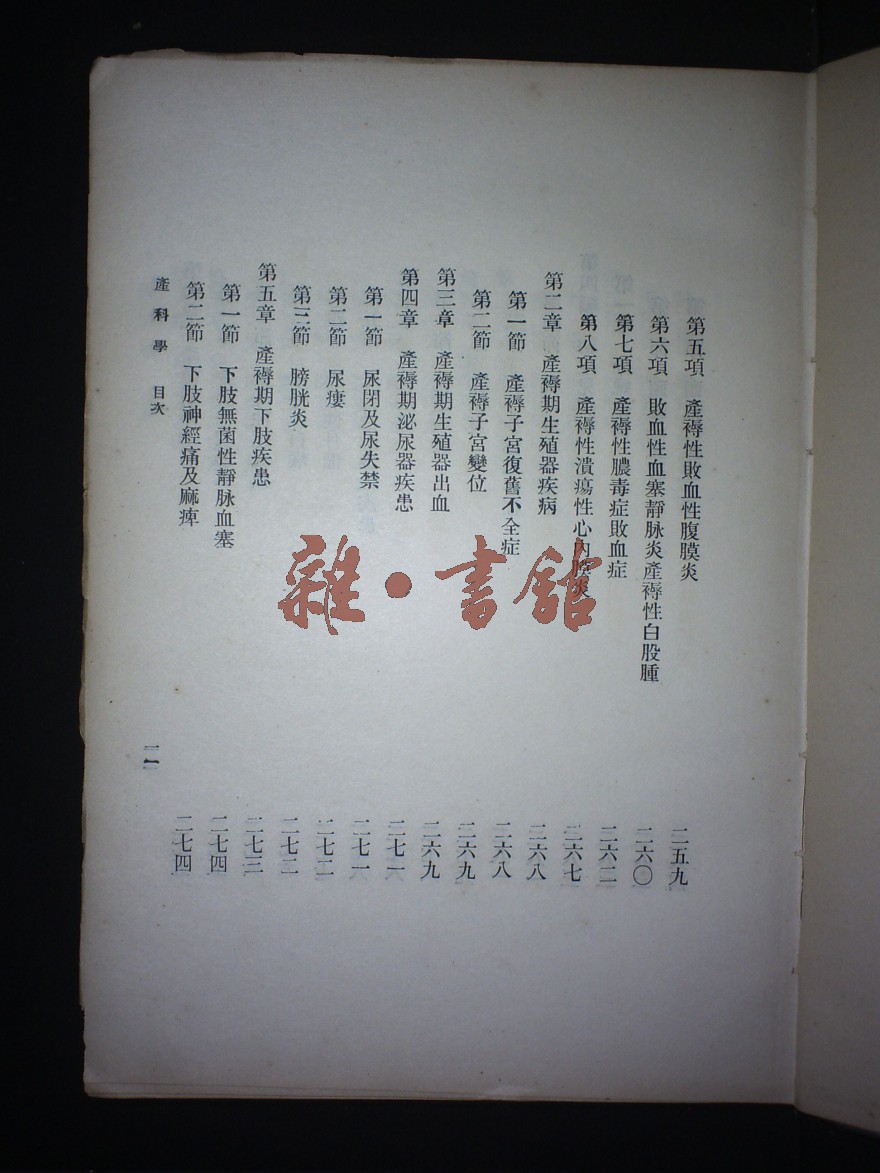 第五項　產褥性敗血性腹膜炎　二五九
第六項　敗血性血塞靜脉炎產褥性白股腫　二六〇
第七項　產褥性膿毒症敗血症　二六二
第八項　產褥性潰瘍性心內膜炎　二六七
第二章　產褥期生殖器疾病　二六八
第一節　產褥子宮復舊不全症　二六八
第二節　產褥子宮變位　二六九
第三章　產褥期生殖器出血　二六九
第四章　產褥期泌尿器疾患　二七一
第一節　尿閉及尿失禁　二七一
第二節　尿瘻　二七二
第三節　膀胱炎　二七二
第五章　產褥期下肢疾患　二七三
第一節　下肢無菌性靜脉血塞　二七四
第二節　下肢神經痛及麻痺　二七四
產科學　目次
雜·書館